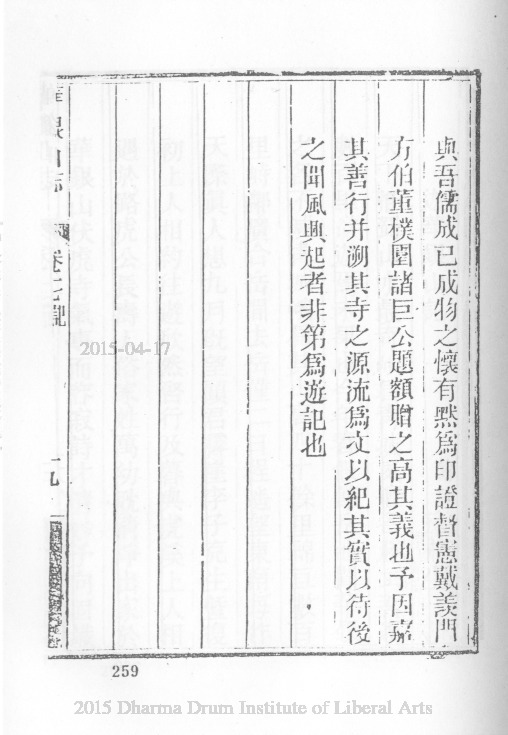 與吾儒成已成物之懷有黙爲印證督憲戴羨門
方伯董樸園諸巨公題額贈之高其義也予因嘉
其善行并溯其寺之源流爲文以紀其實以待後
之聞風興起者非第爲遊記也
華銀山志 卷七 記
十九
2015-04-17
259
2015 Dharma Drum Institute of Liberal Arts